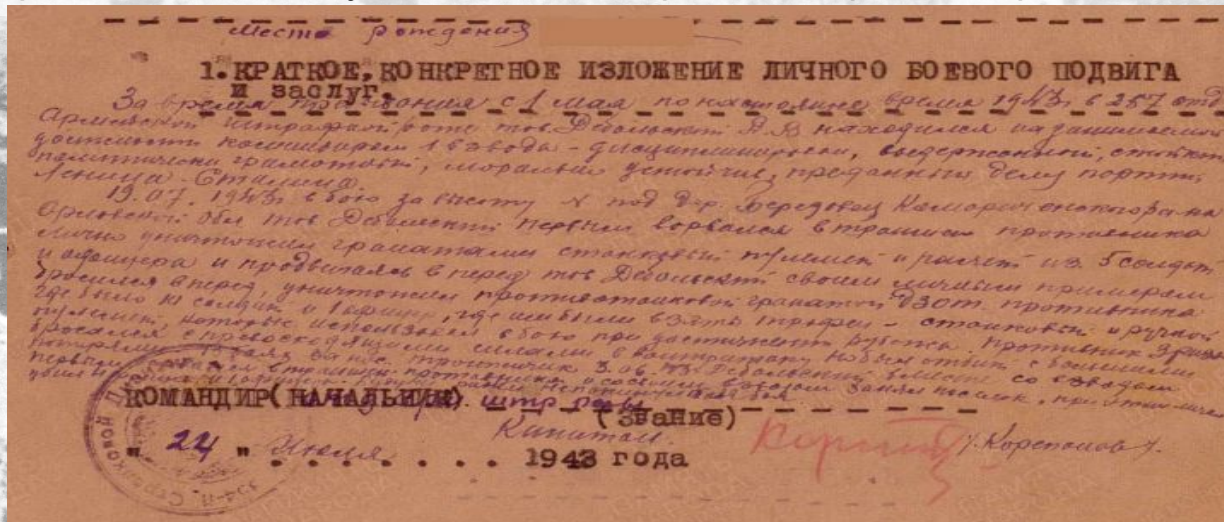 Место рождения
1. КРАТКОЕ, КОНКРЕТНОЕ ИЗЛОЖЕНИЕ ЛИЧНОГО БОЕВОГО ПОДВИГА
и заслуг.
За время с 1 мая по настоящие время 1943г в 257 отд.
Армейской штрафной роте тов. Дебольский находился на занимаемой
должности командиром 1 взвода - дисциплинирован, выдержанный, стойкий
политически грамотный, морально устойчив, преданный делу партии
Ленина - Сталина.
19.07. 1943г в бою за высоту N под дер. района
Орловской обл тов Дебольский первым ворвался в траншеи противника
лично уничтожил гранатами станковый пулемет и расчет из 5 солдат
и офицера и продвигаясь вперед тов Дебольский своим личным примером
бросился вперед, уничтожил противотанковой гранатой ДЗОТ противника
где было 10 солдат и 1 офицер, где им были взяты трофеи - станковый и ручной
пулемет, которые использовал в бою при достижении рубежа. Противник 3 раза
бросался с превосходящими силами в контратаку но был отбит с большими
потерями Дебольский вместе со взводом
первым
КОМАНДИР (НАЧАЛЬНИК) штр роты
(звание)
Капитан.
" 24 " Июля 1943 года